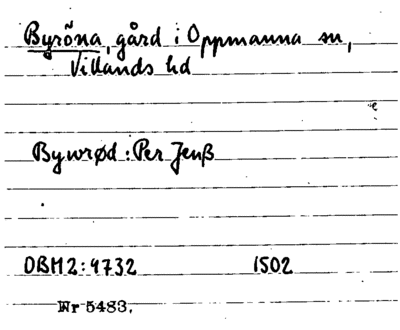 Byröna, gård i Oppmanna sn,
Villands hd
Bywrød : Per Jenß
DBH2:4732 1502
Nr 5483.